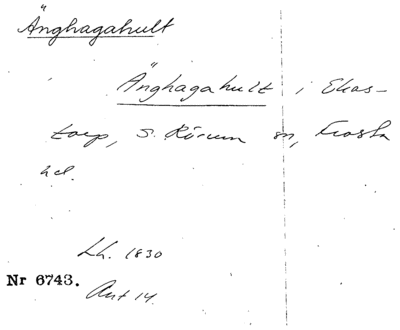 Änghagahult
Änghagahult i Ekas-
torp, S. Rörum sn, Frosta
hd.
Lh. 1830
Nr 6743.
Akt 14.